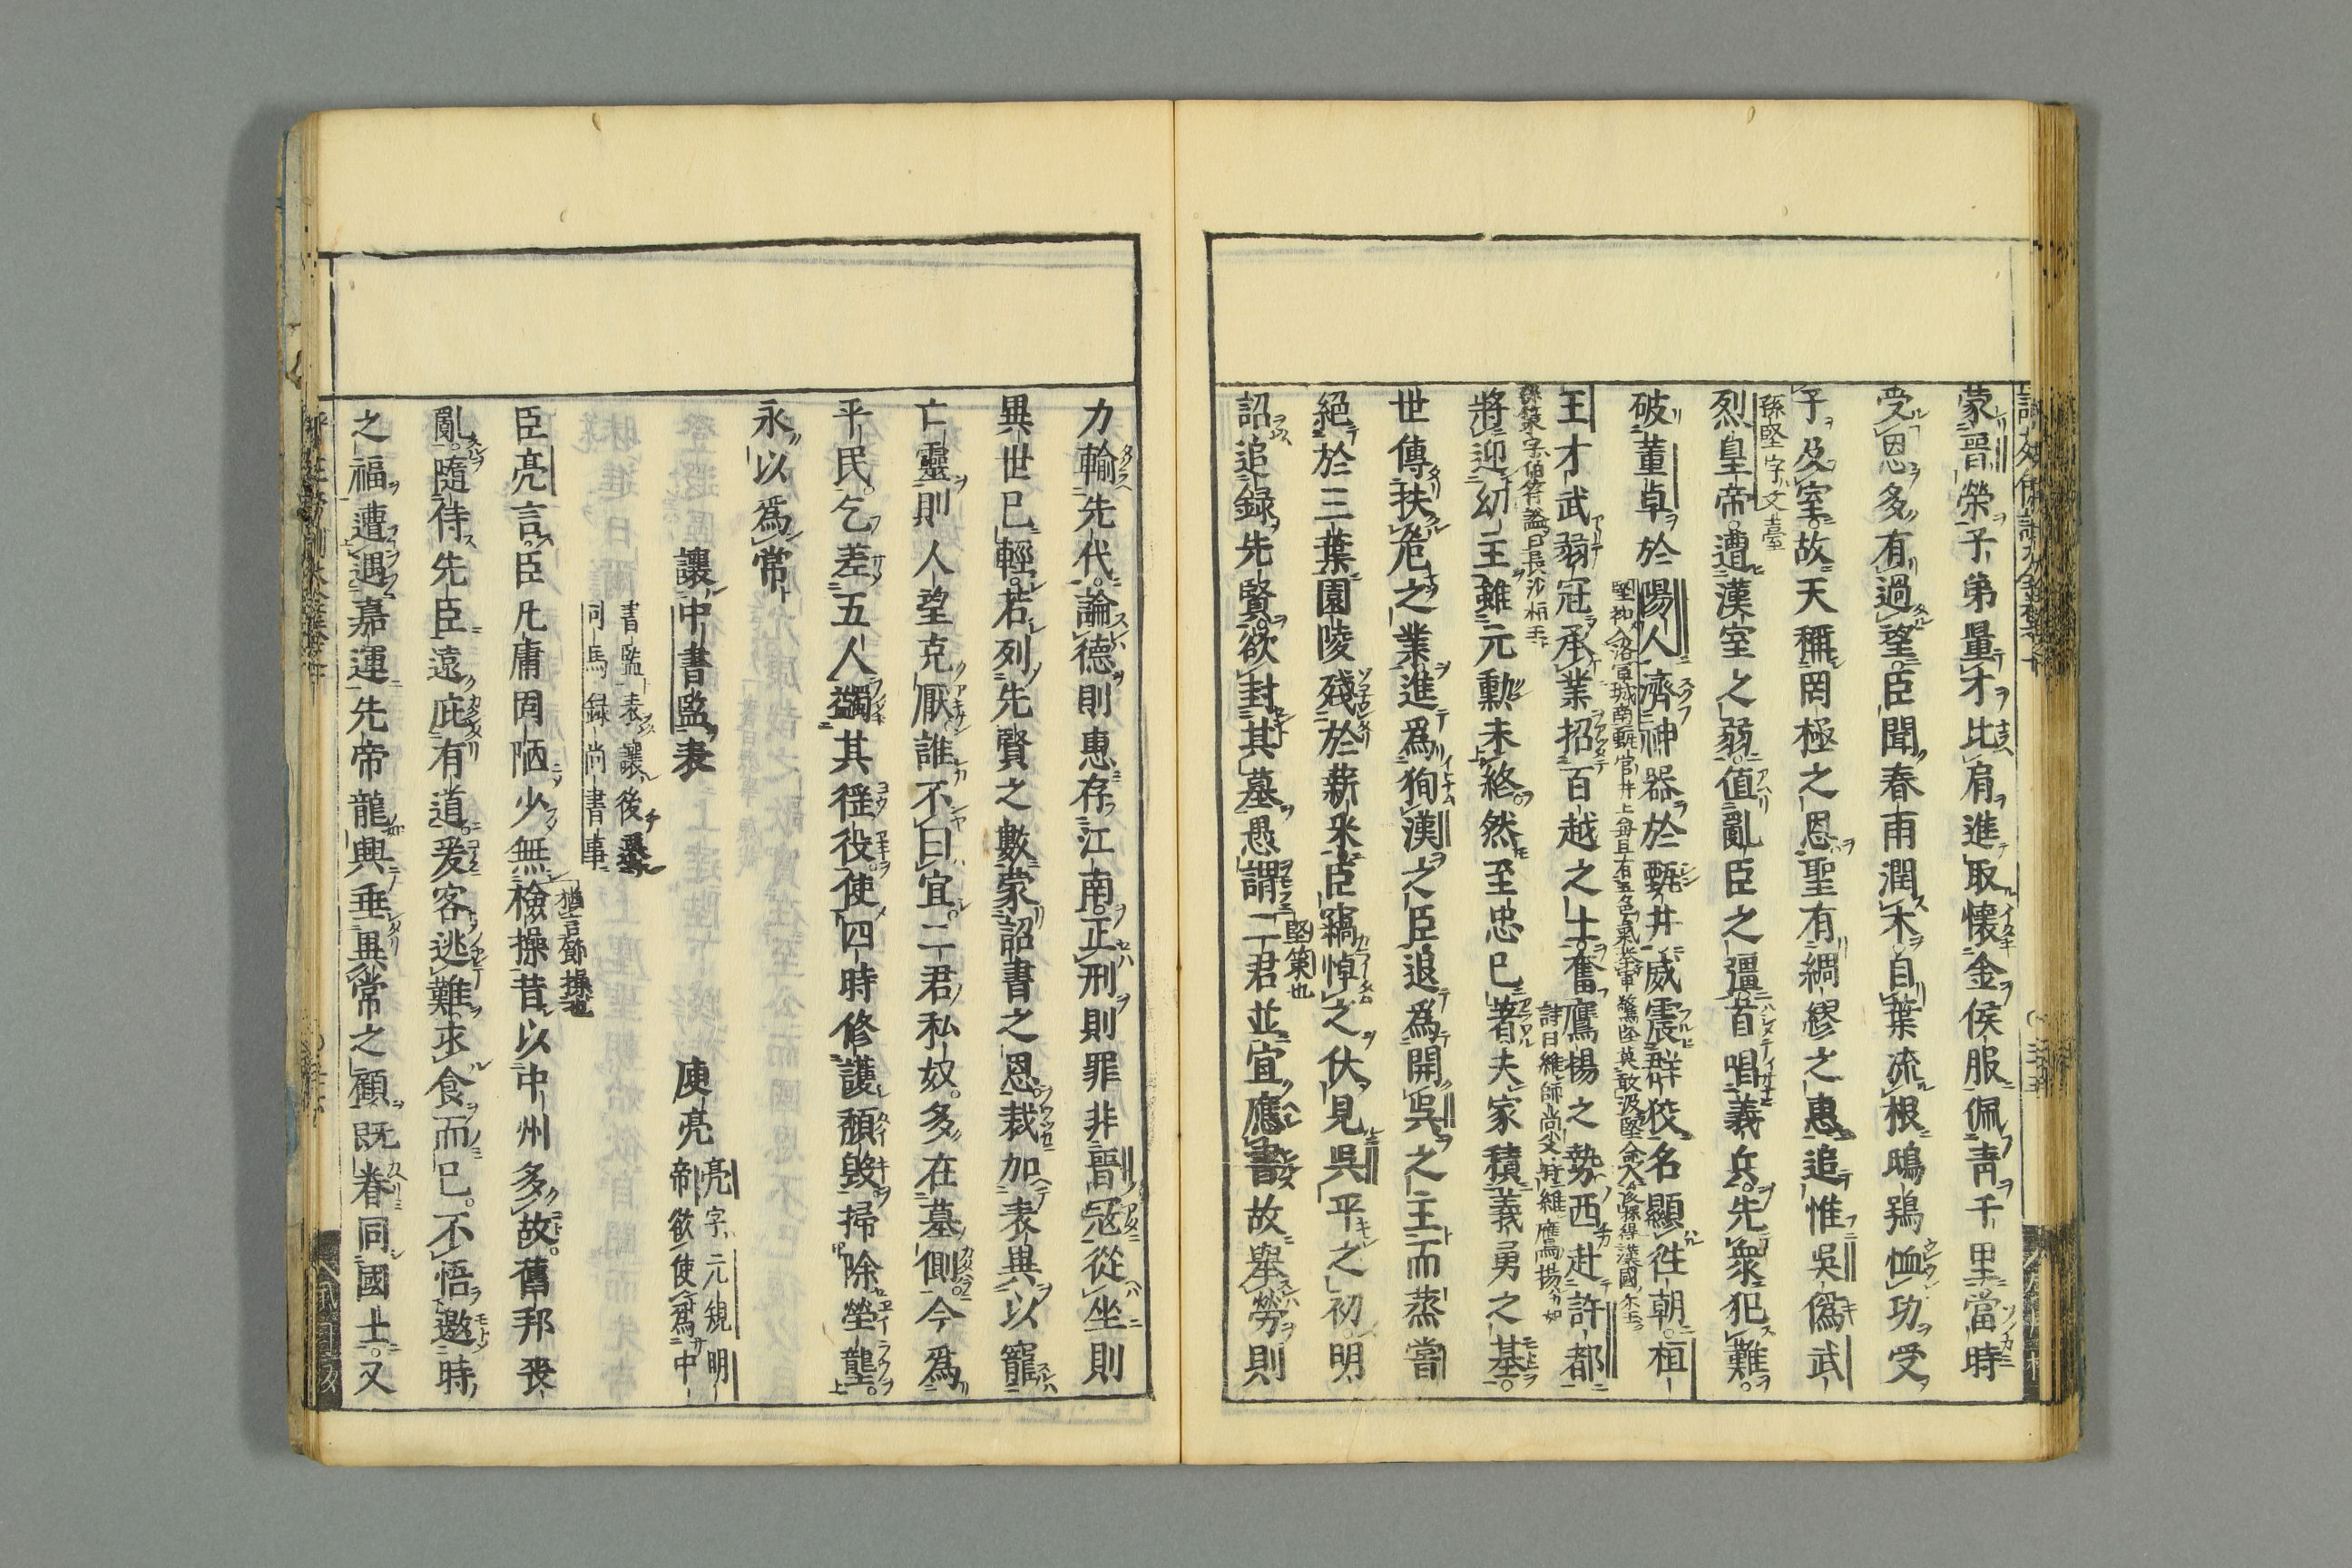 蒙晋榮子弟量才比肩進取懷金侯服佩靑千里當時
受恩多有過望臣聞春雨潤木自葉流根鴟鴞恤功受
子及室故天稱罔極之恩聖有綢繆之惠追惟吳僞武
孫堅字文臺
烈皇帝遭漢室之弱值亂臣之彊首唱義兵先衆犯難
破董卓於陽人濟神器於甄井威震群狡名顯徃朝桓
王才武弱冠承業招百越之士奮鷹揚之勢西赴許都
詩曰維師尚父時維鷹揚
孫策字伯符謚曰長沙桓王
將迎幼主雖元勳未終然至忠已著夫家積義勇之基
世傳扶危之業進爲狥漢之臣退爲開吳之主而蒸嘗
絕於三葉園陵殘於薪采臣竊悼之伏見吳平之初明
詔追録先賢欲封其墓愚謂二君並宜應書故舉勞則
堅策也
力輸先代論德則惠存江南正刑則罪非晉寇從坐則
異世已輕若列先賢之數蒙詔書之恩裁加表異以寵
亡靈則人望克厭誰不曰宜二君私奴多在墓側今爲
平民乞差五人蠲其徭役使四時修護頹毁掃除塋壟
永以爲常
讓中書監表　庾亮
亮字元䂓明
帝欲使爲中
書監表讓後遷
司馬録尚書事
臣亮言臣凡庸固陋少無檢操昔以中州多故舊邦喪
猶言節操也
亂隨侍先臣遠庇有道爰客逃難求食而已不悟邀時
之福遭遇嘉運先帝龍興垂異常之顧既眷同國士又